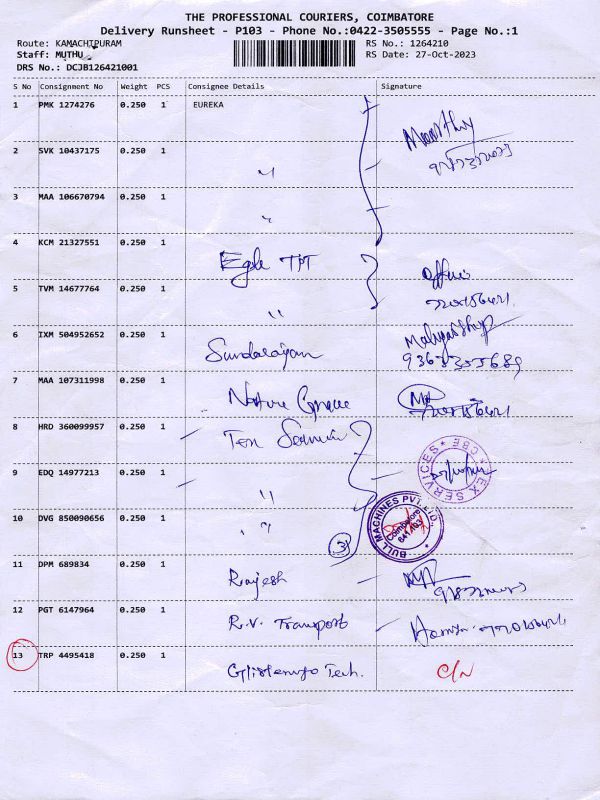 THE PROFESSIONAL COURIERS, COIMBATORE
Delivery Runsheet - P103 - Phone No.:0422-3505555 - Page No.:1
Route: KAMACHIPURAM RS No.: 1264210
Staff: MUTHU RS Date: 27-Oct-2023
DRS No.: DCJB126421001
S No Consignment No Weight PCS Consignee Details Signature
1 PMK 1274276 0.250 1 EUREKA
2 SVK 10437175 0.250 1 "
3 MAA 106670794 0.250 1 "
4 KCM 21327551 0.250 1 Egle TPT
5 TVM 14677764 0.250 1 "
6 IXM 504952652 0.250 1 Sundarajan
7 MAA 107311998 0.250 1 Nature
8 HRD 360099957 0.250 1 Tex
9 EDQ 14977213 0.250 1 "
EX SERVICES * CBE *
10 DVG 850090656 0.250 1 "
BULL MACHINES PVT LTD
Coimbatore
3
11 DPM 689834 0.250 1 Rajesh
12 PGT 6147964 0.250 1 R.V. Transport
13 TRP 4495418 0.250 1 Tech. C/N